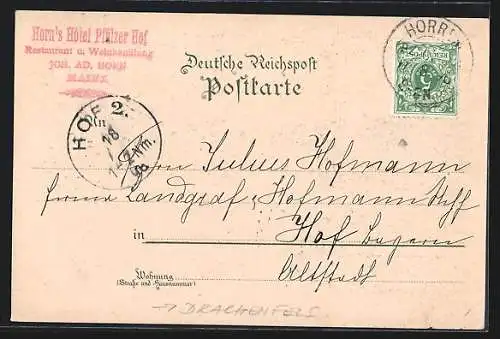 Horn's Hôtel Pfälzer Hof
Restaurant u. Weinhandlung
JOH. AD. HORN
MAINZ
Deutsche Reichspost
Postkarte
HORR
HOF 2.
An
18
Nm.
98
Herrn Julius Hofmann
Firma Landgraf & Hofmann
in Hof Bayern
Altstadt
Wohnung
(Straße und Hausnummer)
→ DRACHENFELS